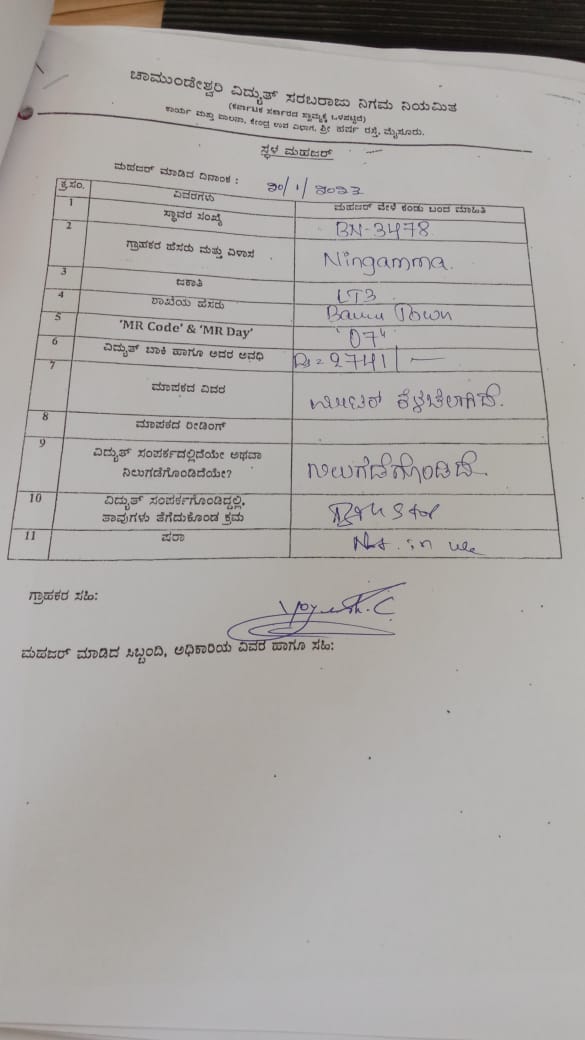 ಚಾಮುಂಡೇಶ್ವರಿ ವಿದ್ಯುತ್ ಸರಬರಾಜು ನಿಗಮ ನಿಯಮಿತ
(ಕರ್ನಾಟಕ ಸರ್ಕಾರದ ಸ್ವಾಮ್ಯಕ್ಕೆ ಒಳಪಟ್ಟಿದೆ)
ಕಾರ್ಯ ಮತ್ತು ಪಾಲನಾ, ಕೇಂದ್ರ ಉಪ ವಿಭಾಗ, ಶ್ರೀ ಹರ್ಷ ರಸ್ತೆ, ಮೈಸೂರು.
ಸ್ಥಳ ಮಹಜರ್
ಮಹಜರ್ ಮಾಡಿದ ದಿನಾಂಕ : 20/1/2023
ಕ್ರ.ಸಂ. ವಿವರಗಳು ಮಹಜರ್ ವೇಳೆ ಕಂಡು ಬಂದ ಮಾಹಿತಿ
1 ಸ್ಥಾವರ ಸಂಖ್ಯೆ BN-3478
2 ಗ್ರಾಹಕರ ಹೆಸರು ಮತ್ತು ವಿಳಾಸ Ningamma.
3 ಜಕಾತಿ LT3
4 ಶಾಖೆಯ ಹೆಸರು Town
5 'MR Code' & 'MR Day' "07"
6 ವಿದ್ಯುತ್ ಬಾಕಿ ಹಾಗೂ ಅದರ ಅವಧಿ 2741/—
7 ಮಾಪಕದ ವಿವರ
8 ಮಾಪಕದ ರೀಡಿಂಗ್
9 ವಿದ್ಯುತ್ ಸಂಪರ್ಕದಲ್ಲಿದೆಯೇ ಅಥವಾ
ನಿಲುಗಡೆಗೊಂಡಿದೆಯೇ? ನಿಲುಗಡೆಗೊಂಡಿದೆ.
10 ವಿದ್ಯುತ್ ಸಂಪರ್ಕಗೊಂಡಿದ್ದಲ್ಲಿ,
ತಾವುಗಳು ತೆಗೆದುಕೊಂಡ ಕ್ರಮ
11 ಷರಾ Not in use
ಗ್ರಾಹಕರ ಸಹಿ:
ಮಹಜರ್ ಮಾಡಿದ ಸಿಬ್ಬಂದಿ, ಅಧಿಕಾರಿಯ ವಿವರ ಹಾಗೂ ಸಹಿ: